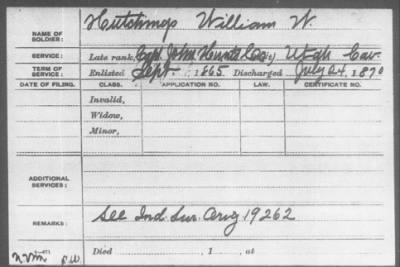 NAME OF SOLDIER: Hutchings William W.
SERVICE: Late rank, Capt John Co, Utah Cav
TERM OF SERVICE: Enlisted Sept. 1865 Discharged July 24, 1870
DATE OF FILING. CLASS. APPLICATION NO. LAW. CERTIFICATE NO.
Invalid,
Widow,
Minor,
ADDITIONAL SERVICES:
REMARKS: See Ind. Sur. Orig 19262
Died , 1 , at